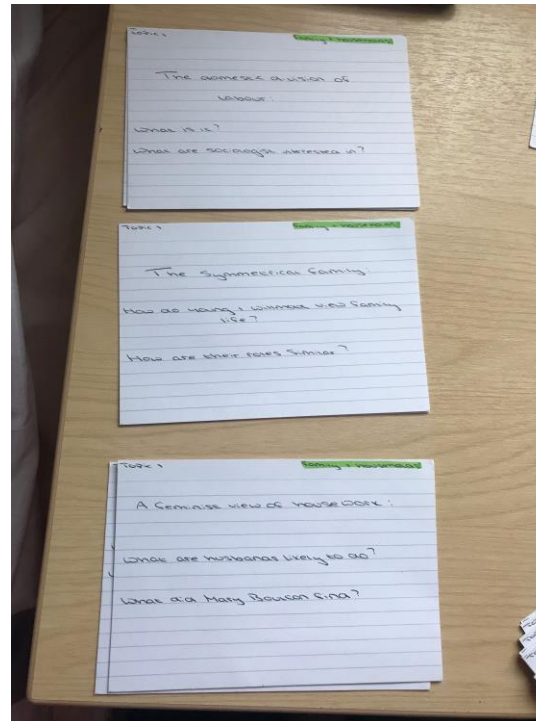 Topic 1
Family + households
The domestic division of
labour:
What is it?
What are sociologist interested in?
Topic 1
Family + households
The Symmetrical family:
How do young + willmott view family
life?
How are their roles similar?
Topic 1
Family + households
A feminist view of housework:
What are husbands likely to do?
What did Mary Boulton find?